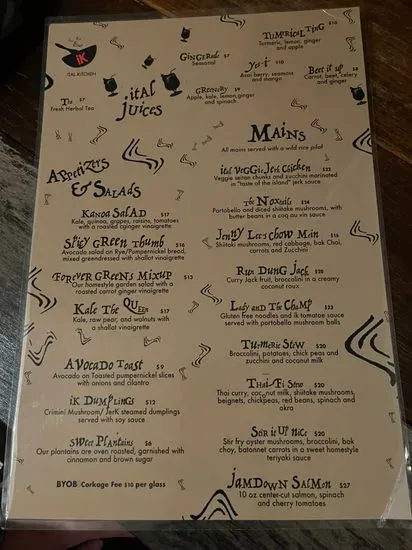 iK
ITAL KITCHEN
Tea $7
Fresh Herbal Tea
ital
Juices
GINGERade $7
Seasonal
GREENERY $9
Apple, kale, lemon, ginger
and spinach
TUMERICAL TING $10
Turmeric, lemon, ginger
and apple
Yes-i $10
Acai berry, seamoss
and mango
Beet it up $8
Carrot, beet, celery
and ginger
APPETIZERS
& SALADS
KANOA SALAD $17
Kale, quinoa, grapes, raisins, tomatoes
with a roasted ginger vinaigrette
SPICY GREEN THUMB $16
Avocado salad on Rye/Pumpernickel bread,
mixed greendressed with shallot vinaigrette
FOREVER GREENS MIXUP $13
Our homestyle garden salad with a
roasted carrot ginger vinaigrette
KALE THE QUEEN $17
Kale, raw pear, and walnuts with
a shallot vinaigrette
AVOCADO TOAST $9
Avocado on Toasted pumpernickel slices
with onions and cilantro
iK DUMPLINGS $12
Crimini Mushroom/ JerK steamed dumplings
served with soy sauce
SWEET PLANTAINS $6
Our plantains are oven roasted, garnished with
cinnamon and brown sugar
BYOB | Corkage Fee $10 per glass
MAINS
All mains served with a wild rice pilaf
ital VEGGIE JERK CHICKEN $22
Veggie seitan chunks and zucchini marinated
in "taste of the island" jerk sauce
THE NOXTAILS $24
Portobello and diced shiitake mushrooms, with
butter beans in a coq au vin sauce
JENNY LEE'S CHOW MEIN $16
Shiitaki mushrooms, red cabbage, bak Choi,
carrots and Zucchini
RUN DUNG JACK $20
Curry Jack fruit, broccolini in a creamy
coconut roux
LADY AND THE CHAMP $23
Gluten free noodles and ik tomato sauce
served with portobello mushroom balls
TURMERIC STEW $20
Broccolini, potatoes, chick peas and
zucchini and coconut milk
THAI/FI STEW $20
Thai curry, coconut milk, shiitake mushrooms,
beignets, chickpeas, red beans, spinach and
okra
STIR IT UP NICE $20
Stir fry oyster mushrooms, broccolini, bok
choy, batonnet carrots in a sweet homestyle
teriyaki sauce
JAMDOWN SALMON $27
10 oz center-cut salmon, spinach
and cherry tomatoes